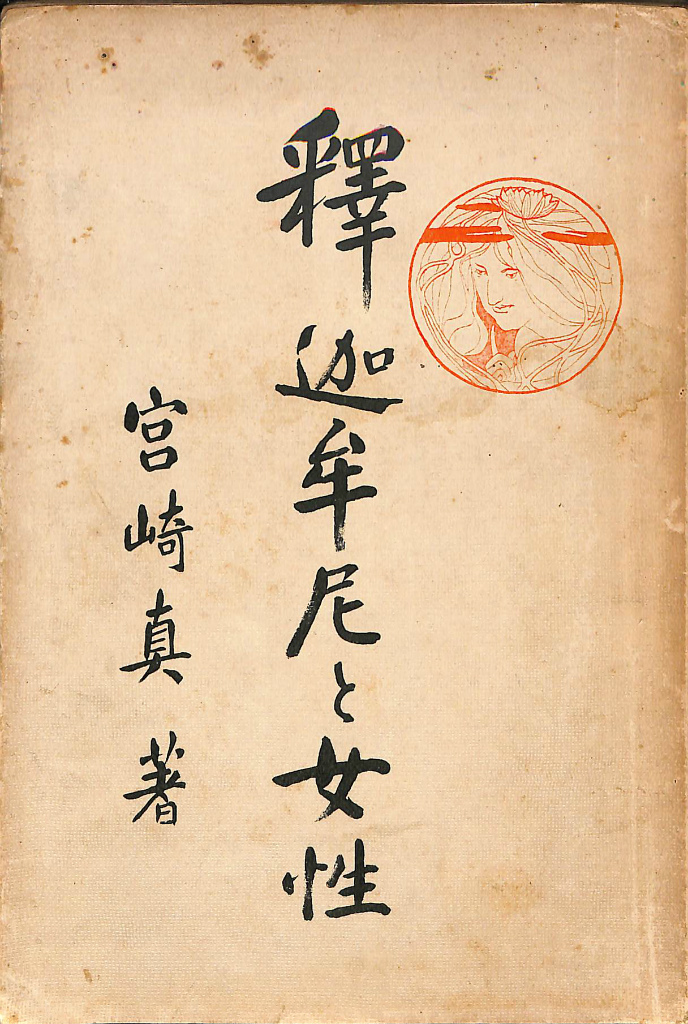 釋迦牟尼と女性
宮崎真 著